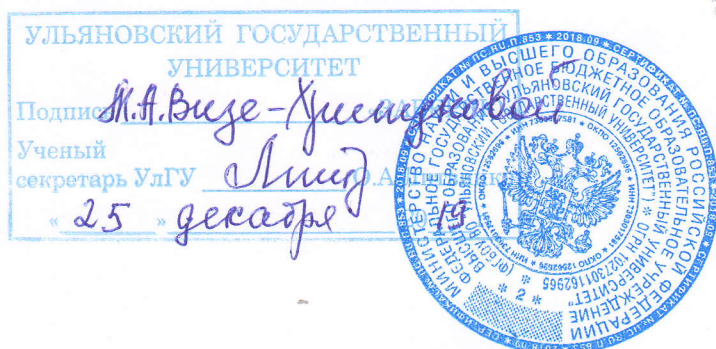 УЛЬЯНОВСКИЙ ГОСУДАРСТВЕННЫЙ
УНИВЕРСИТЕТ
Подпись М.А.Визе-Хрипуновой
Ученый
секретарь УлГУ О.А.
« 25 » декабря 19
МИНИСТЕРСТВО НАУКИ И ВЫСШЕГО ОБРАЗОВАНИЯ РОССИЙСКОЙ ФЕДЕРАЦИИ
ФЕДЕРАЛЬНОЕ ГОСУДАРСТВЕННОЕ БЮДЖЕТНОЕ ОБРАЗОВАТЕЛЬНОЕ УЧРЕЖДЕНИЕ
ВЫСШЕГО ОБРАЗОВАНИЯ "УЛЬЯНОВСКИЙ ГОСУДАРСТВЕННЫЙ УНИВЕРСИТЕТ"
* ОГРН 1027301162965
* 2 *